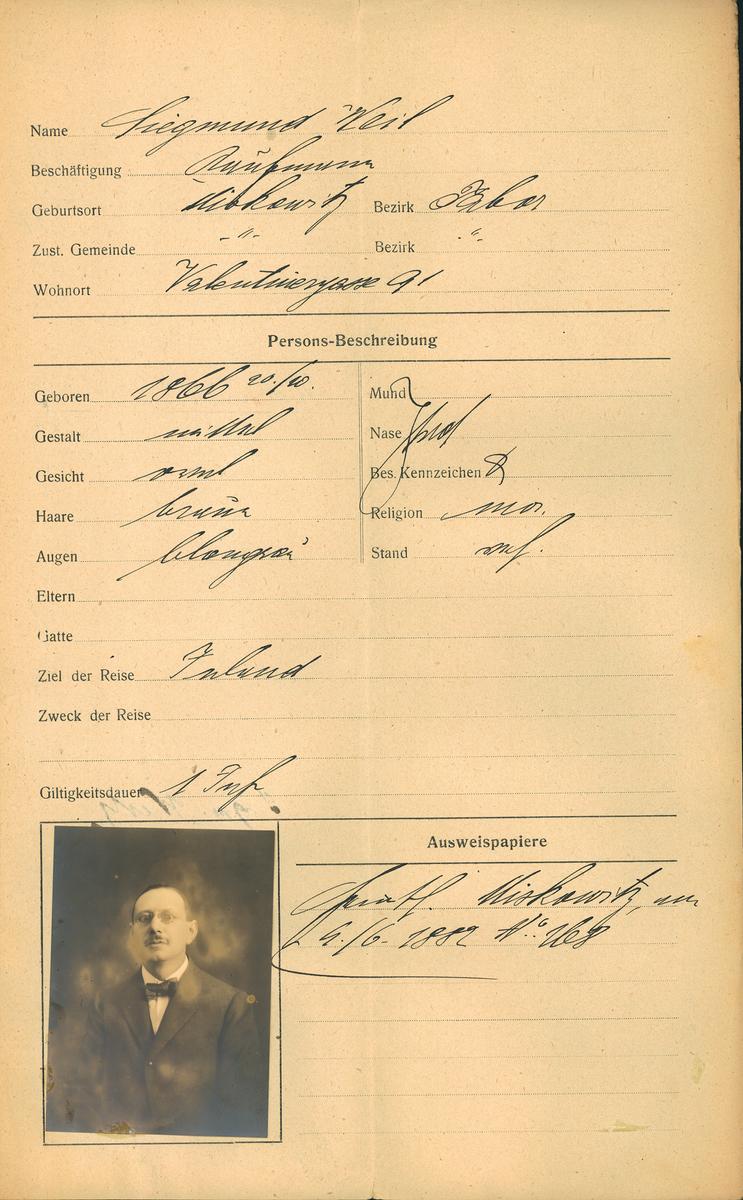 Name Siegmund Weil
Beschäftigung Kaufmann
Geburtsort Miskowitz Bezirk Tabor
Zust. Gemeinde -"- Bezirk "
Wohnort Valentinergasse 91
Persons-Beschreibung
Geboren 1866 20./10. Mund
Gestalt mittel Nase prop
Gesicht oval Bes. Kennzeichen
Haare braun Religion mos.
Augen blaugrau Stand verh.
Eltern
Gatte
Ziel der Reise Inland
Zweck der Reise
Giltigkeitsdauer 1 Jahr
Ausweispapiere
Miskowitz,
1882 No